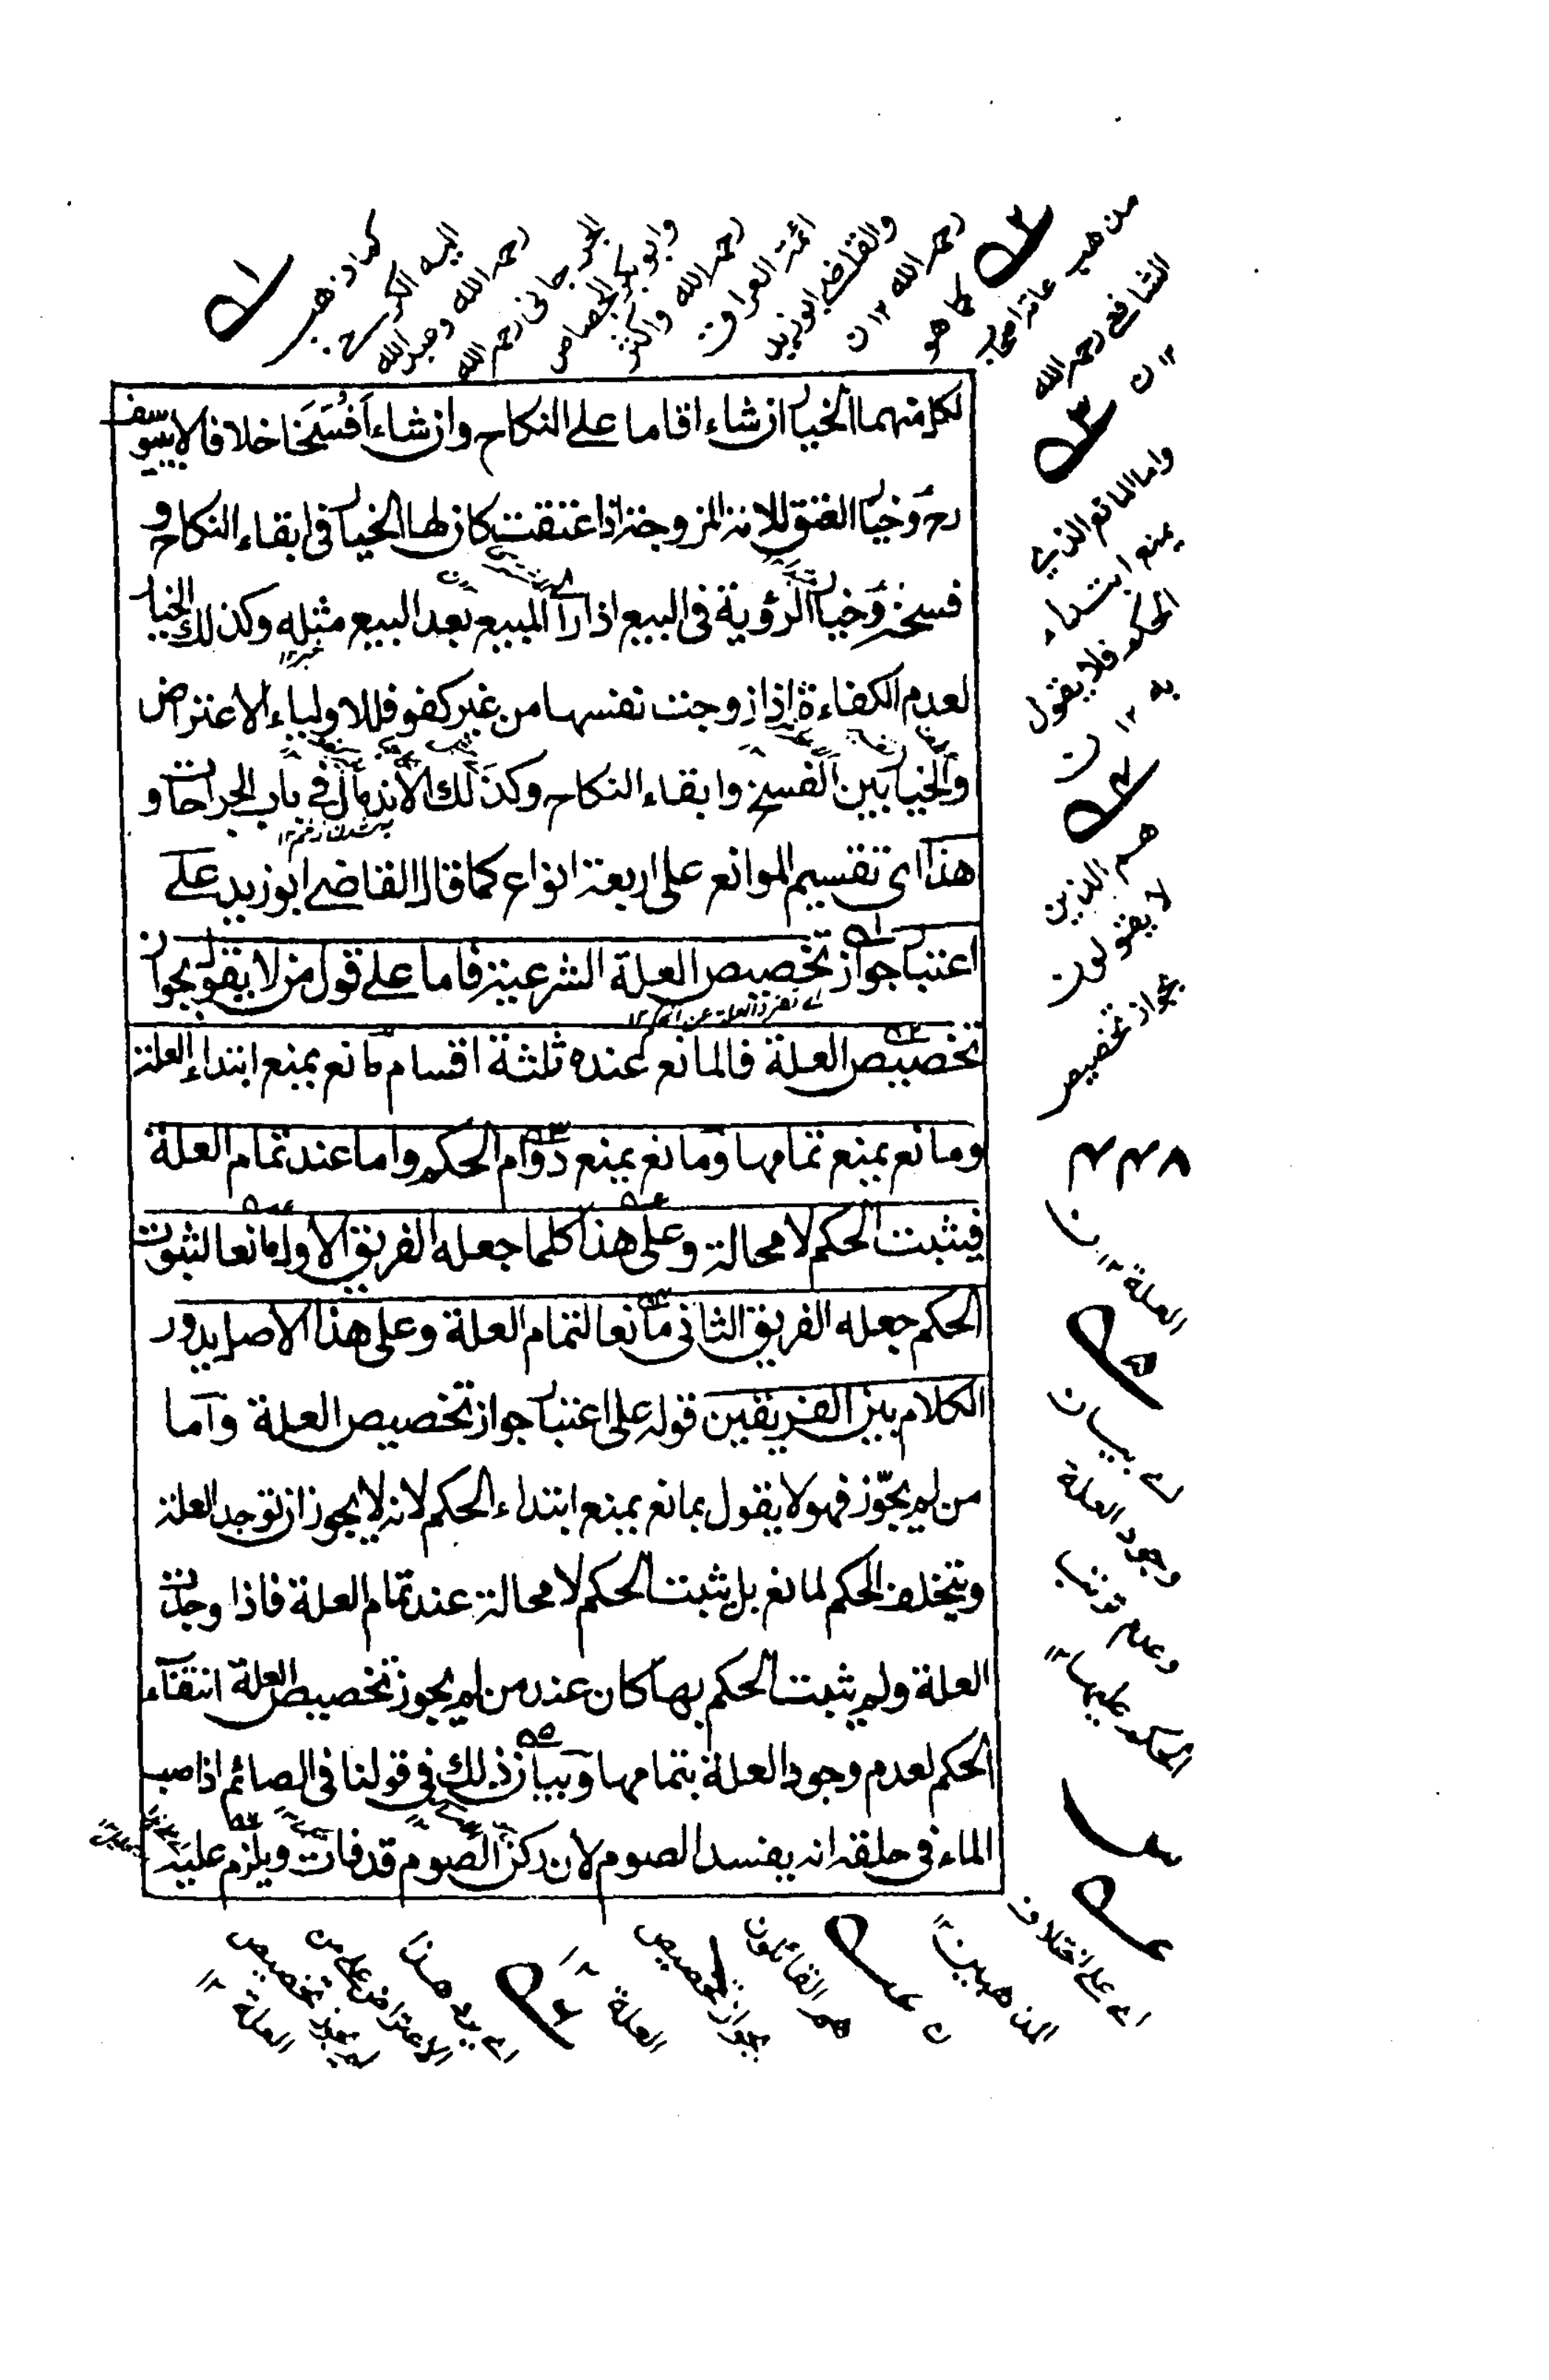 لكل منهما الخيار ان شاءا اقاما على النكاح وان شاءا فسخا خلافا لابي يوسف
رح وخيار العتق للامة المزوجة اذا عتقت كان لها الخيار في ابقاء النكاح و
فسخه وخيار الرؤية في البيع اذا رآ المبيع بعد البيع مثله وكذلك الخيار
لعدم الكفاءة اذا زوجت نفسها من غير كفو فللاولياء الاعتراض
والخيار بين الفسخ وابقاء النكاح وكذلك الاندمال في باب الجراحات و
هذا اى تقسيم الموانع على اربعة انواع كما قال القاضي ابو زيد على
اعتبار جواز تخصيص العلة الشرعية فاما على قول من لا يقول بجواز
تخصيص العلة فالمانع عنده ثلثة اقسام مانع يمنع ابتداء العلة
ومانع يمنع تمامها ومانع يمنع دوام الحكم واما عند تمام العلة
فيثبت الحكم لا محالة وعلى هذا كلما جعله الفريق الاول مانعا لثبوت
الحكم جعله الفريق الثاني مانعا لتمام العلة وعلى هذا الاصل يدور
الكلام بين الفريقين قوله على اعتبار جواز تخصيص العلة واما
من لم يجوّز فهو لا يقول بمانع يمنع ابتداء الحكم لانه لا يجوز ان توجد العلة
ويتخلف الحكم لمانع بل يثبت الحكم لا محالة عند تمام العلة فاذا وجدت
العلة ولم يثبت الحكم بها كان عند من لم يجوز تخصيص العلة انتفاء
الحكم لعدم وجود العلة بتمامها وبيان ذلك في قولنا في الصائم اذا صب
الماء في حلقه انه يفسد الصوم لان ركن الصوم قد فات ويلزم عليه
اليه الكرخي
رحمه الله
الجرجاني رحمه الله
وابو بكر الجصاص
رحمه الله واكثر
ائمة العراق
والقاضي ابو زيد
رحمه الله ١٢ ن
كما هو
من هب عامة اصحاب
الشافعي رحمه الله
١٢ ن
واما المانع الذي
يمنع ابتداء
الحكم فلا يقول
به ١٢ ن
هم الذين
لا يقولون
بجواز تخصيص
العلة ١٢ ن
اے بيان
وجود العلة
وعدم ترتب
الحكم عليها ١٢
اے على اختلاف
المذهبين ١٢
هم القائلون
بجواز تخصيص
العلة ١٢
العلة ١٢